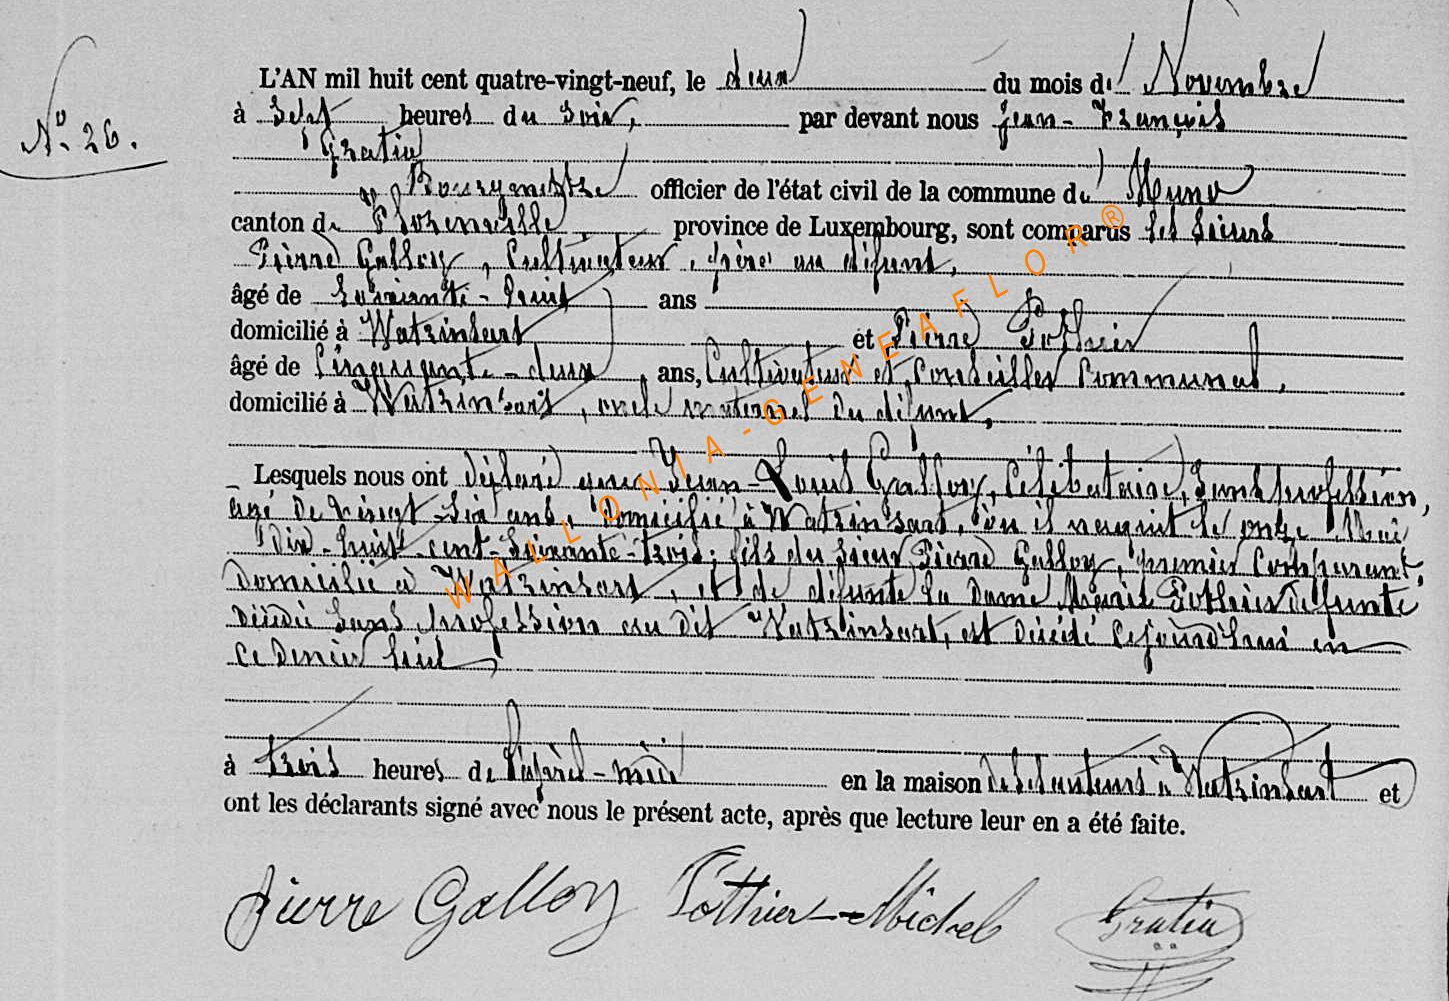 N° 26.
L'AN mil huit cent quatre-vingt-neuf, le deux du mois de Novembre
à Sept heures du Soir, par devant nous Jean-François
Gratia
Bourgmestre officier de l'état civil de la commune de Muno
canton de Florenville province de Luxembourg, sont comparus les Sieurs
Pierre Galloy, Cultivateur, père au défunt,
âgé de Soixante-huit ans
domicilié à Watrinsart et Pierre Pothier
âgé de Cinquante-deux ans, Cultivateur et Conseiller Communal,
domicilié à Watrinsart, oncle maternel du défunt,
Lesquels nous ont déclaré que Jean-Louis Galloy, Célibataire, Sans profession,
âgé de vingt-six ans, Domicilié à Watrinsart, où il naquit le onze Mai
Dix-huit-cent-Soixante-trois; fils du Sieur Pierre Galloy, premier Comparant,
Domicilié à Watrinsart, et de défunte la Dame Marie Pothier défunte
Sans profession au dit Watrinsart, est décédé Cejourd'hui en
ce Dernier lieu,
à trois heures de l'après-midi en la maison à Watrinsart et
ont les déclarants signé avec nous le présent acte, après que lecture leur en a été faite.
Pierre Galloy Pothier-Michel Gratia
WALLONIA-GENEAFLOR®